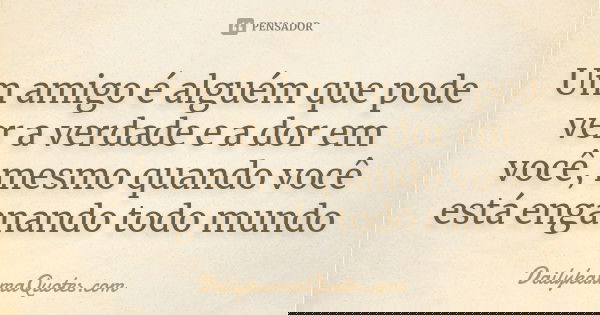 PENSADOR
Um amigo é alguém que pode
ver a verdade e a dor em
você, mesmo quando você
está enganando todo mundo
DailykarmaQuotes.com